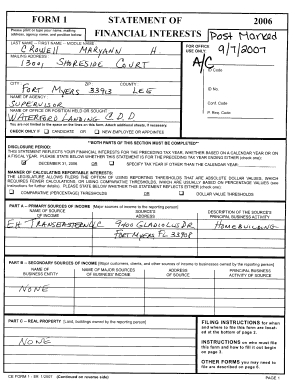 FORM 1 STATEMENT OF 2006
Please print or type your name, mailing address, agency name, and position below:
FINANCIAL INTERESTS
Post Marked
9/7/2007
LAST NAME -- FIRST NAME -- MIDDLE NAME
CROWELL MARYANN H.
FOR OFFICE USE ONLY:
A/C
MAILING ADDRESS
Shoreside Court
ID Code
CITY: ZIP: COUNTY:
FORT MYERS 33913 LEE
ID No.
NAME OF AGENCY:
SUPERVISOR
Conf. Code
NAME OF OFFICE OR POSITION HELD OR SOUGHT:
WATERFORD LANDING C.D.D
P. Req. Code
You are not limited to the space on the lines on this form. Attach additional sheets, if necessary.
CHECK ONLY IF CANDIDATE OR NEW EMPLOYEE OR APPOINTEE
**BOTH PARTS OF THIS SECTION MUST BE COMPLETED**
DISCLOSURE PERIOD:
THIS STATEMENT REFLECTS YOUR FINANCIAL INTERESTS FOR THE PRECEDING TAX YEAR, WHETHER BASED ON A CALENDAR YEAR OR ON
A FISCAL YEAR. PLEASE STATE BELOW WHETHER THIS STATEMENT IS FOR THE PRECEDING TAX YEAR ENDING EITHER (check one):
DECEMBER 31, 2006 OR SPECIFY TAX YEAR IF OTHER THAN THE CALENDAR YEAR:
MANNER OF CALCULATING REPORTABLE INTERESTS:
THE LEGISLATURE ALLOWS FILERS THE OPTION OF USING REPORTING THRESHOLDS THAT ARE ABSOLUTE DOLLAR VALUES, WHICH
REQUIRES FEWER CALCULATIONS, OR USING COMPARATIVE THRESHOLDS, WHICH ARE USUALLY BASED ON PERCENTAGE VALUES (see
instructions for further details). PLEASE STATE BELOW WHETHER THIS STATEMENT REFLECTS EITHER (check one):
COMPARATIVE (PERCENTAGE) THRESHOLDS OR DOLLAR VALUE THRESHOLDS
PART A -- PRIMARY SOURCES OF INCOME [Major sources of income to the reporting person]
NAME OF SOURCE OF INCOME SOURCE'S ADDRESS DESCRIPTION OF THE SOURCE'S PRINCIPAL BUSINESS ACTIVITY
9400 GLADIOLUS DR HOMEBUILDING
FORT MYERS FL 33908
PART B -- SECONDARY SOURCES OF INCOME [Major customers, clients, and other sources of income to businesses owned by the reporting person]
NAME OF BUSINESS ENTITY NAME OF MAJOR SOURCES OF BUSINESS' INCOME ADDRESS OF SOURCE PRINCIPAL BUSINESS ACTIVITY OF SOURCE
NONE
PART C -- REAL PROPERTY [Land, buildings owned by the reporting person]
NONE
FILING INSTRUCTIONS for when and where to file this form are located at the bottom of page 2.
INSTRUCTIONS on who must file this form and how to fill it out begin on page 3.
OTHER FORMS you may need to file are described on page 6.
CE FORM 1 - Eff. 1/2007 (Continued on reverse side) PAGE 1